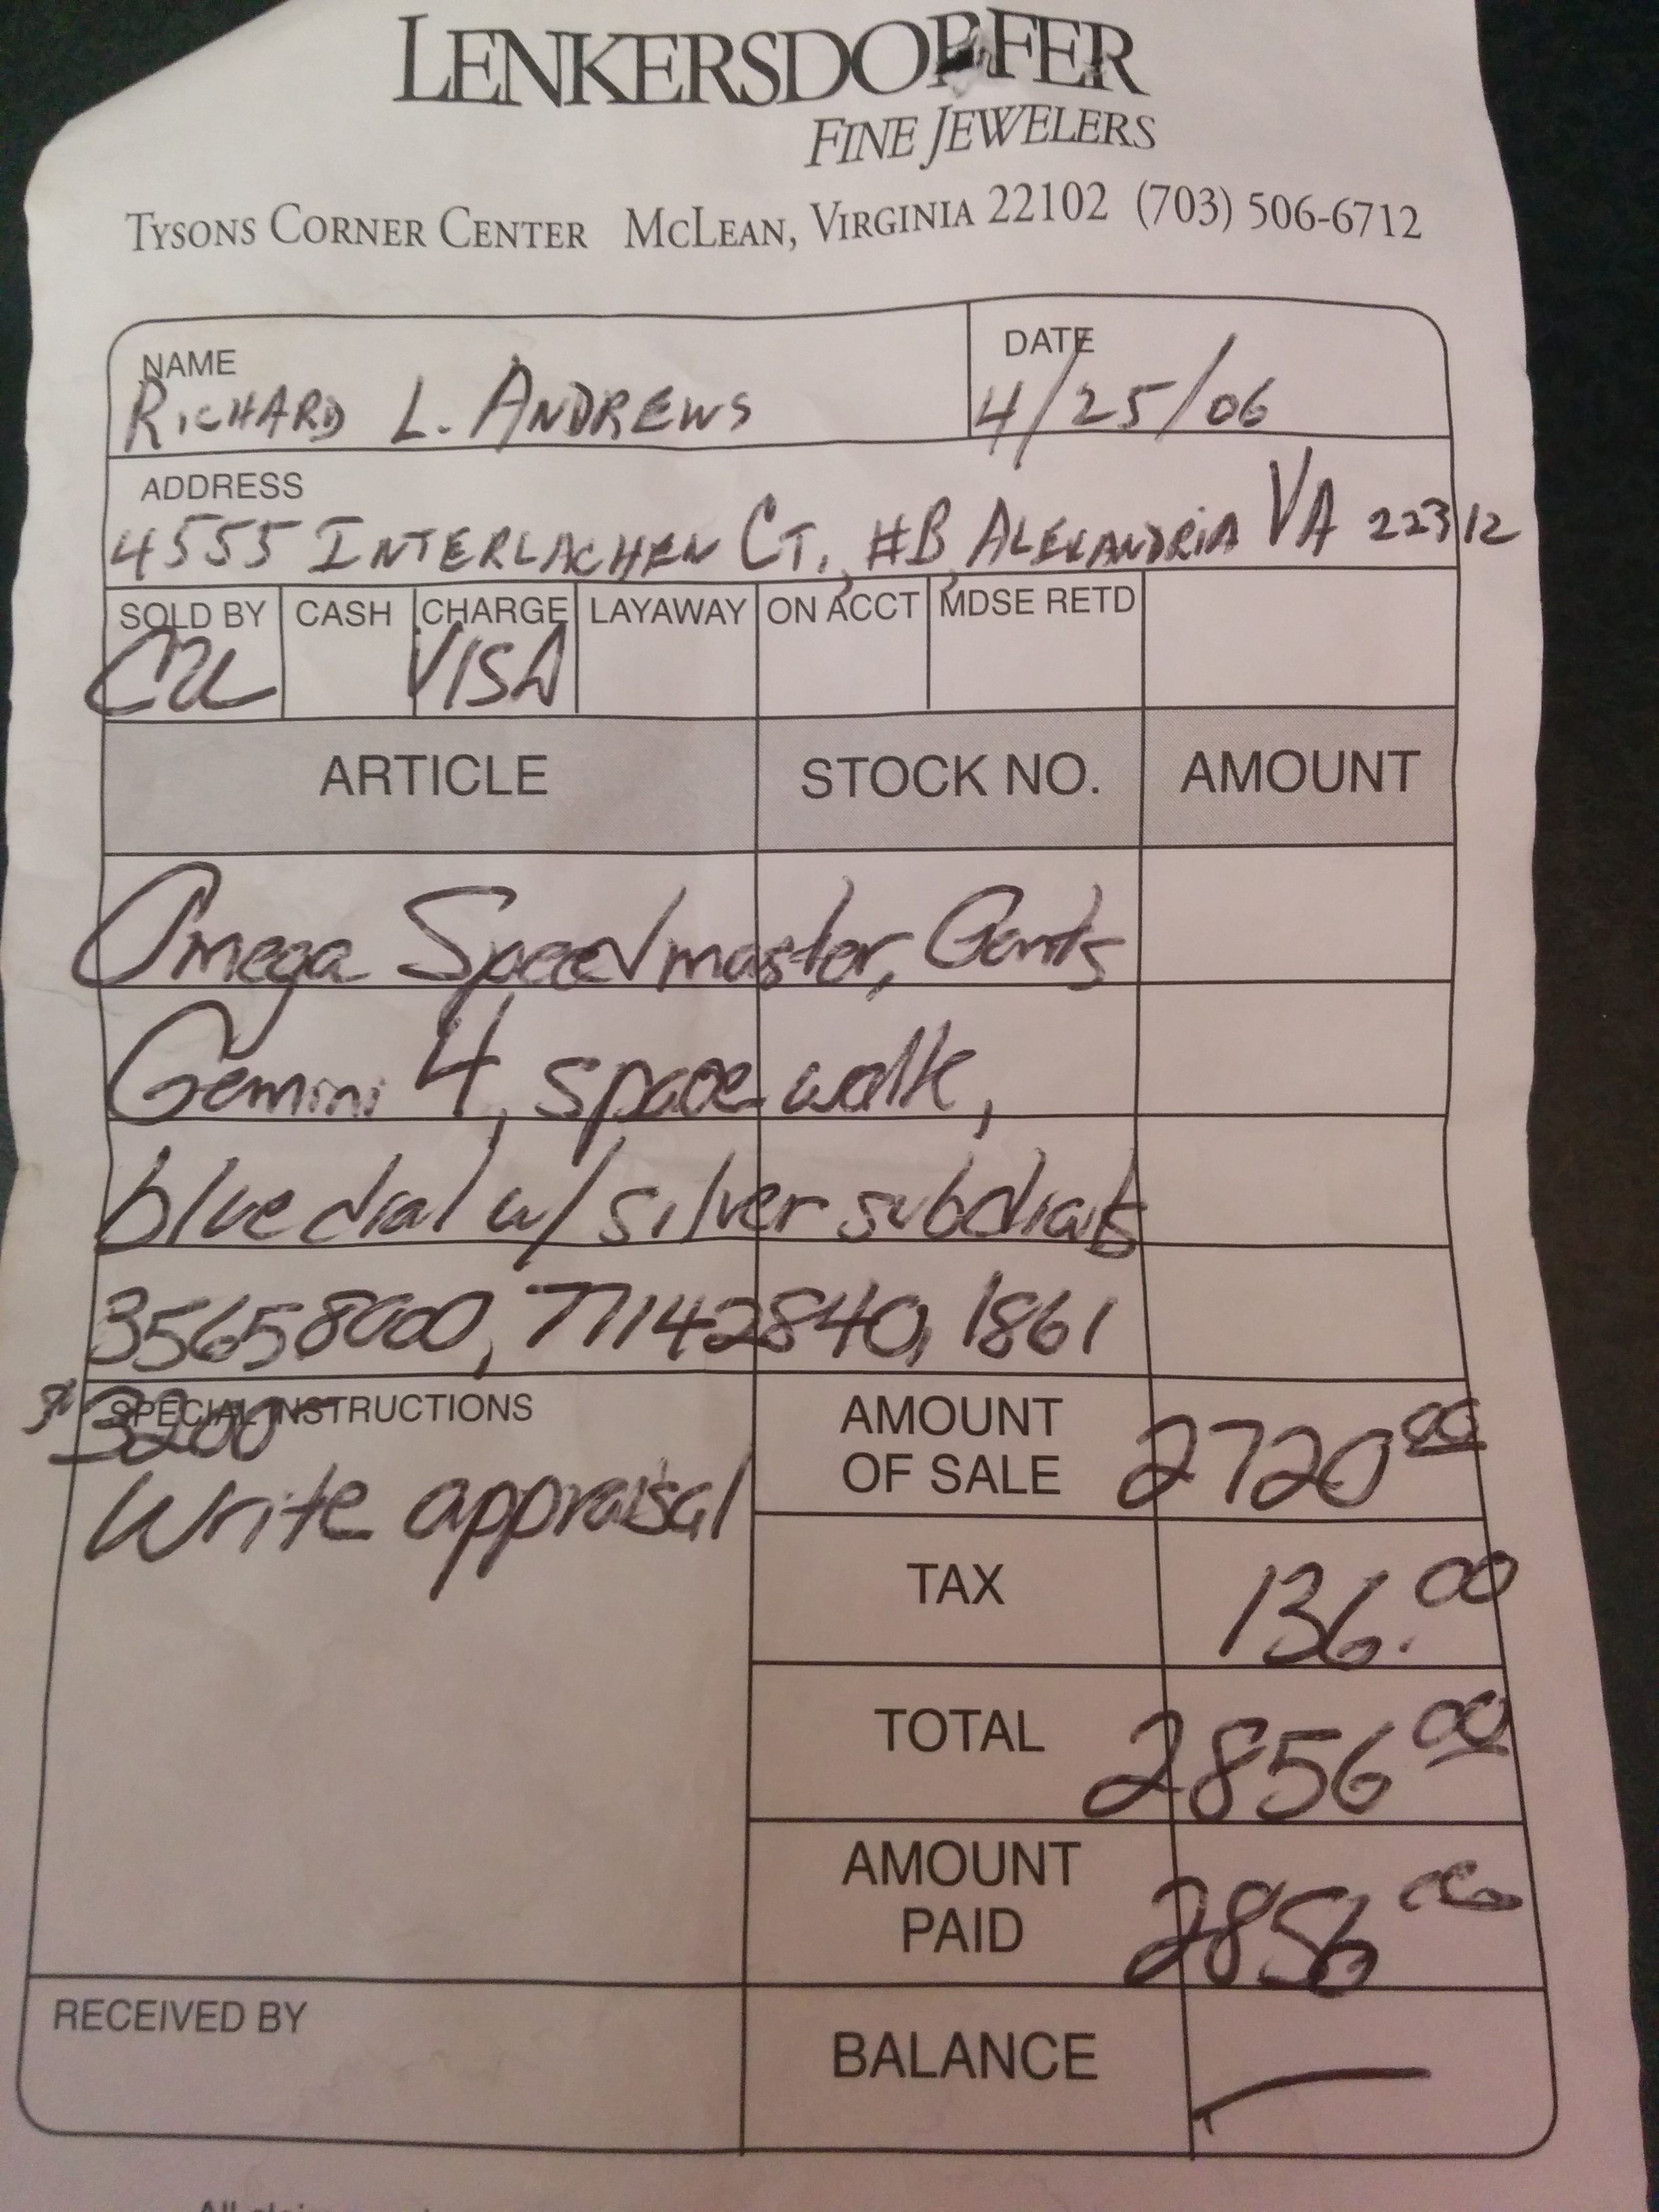 LENKERSDORFER
FINE JEWELERS
TYSONS CORNER CENTER MCLEAN, VIRGINIA 22102 (703) 506-6712
NAME DATE
RICHARD L. ANDREWS 4/25/06
ADDRESS
4555 INTERLACHEN CT. #B, ALEXANDRIA VA 22312
SOLD BY CASH CHARGE LAYAWAY ON ACCT MDSE RETD
VISA
ARTICLE STOCK NO. AMOUNT
Omega Speedmaster, Gents
Gemini 4, space walk,
blue dial w/ silver subdials
35658000, 77142840, 1861
SPECIAL INSTRUCTIONS
$3200
Write appraisal
AMOUNT
OF SALE 2720 00
TAX 136.00
TOTAL 2856 00
AMOUNT
PAID 2856 00
RECEIVED BY
BALANCE —